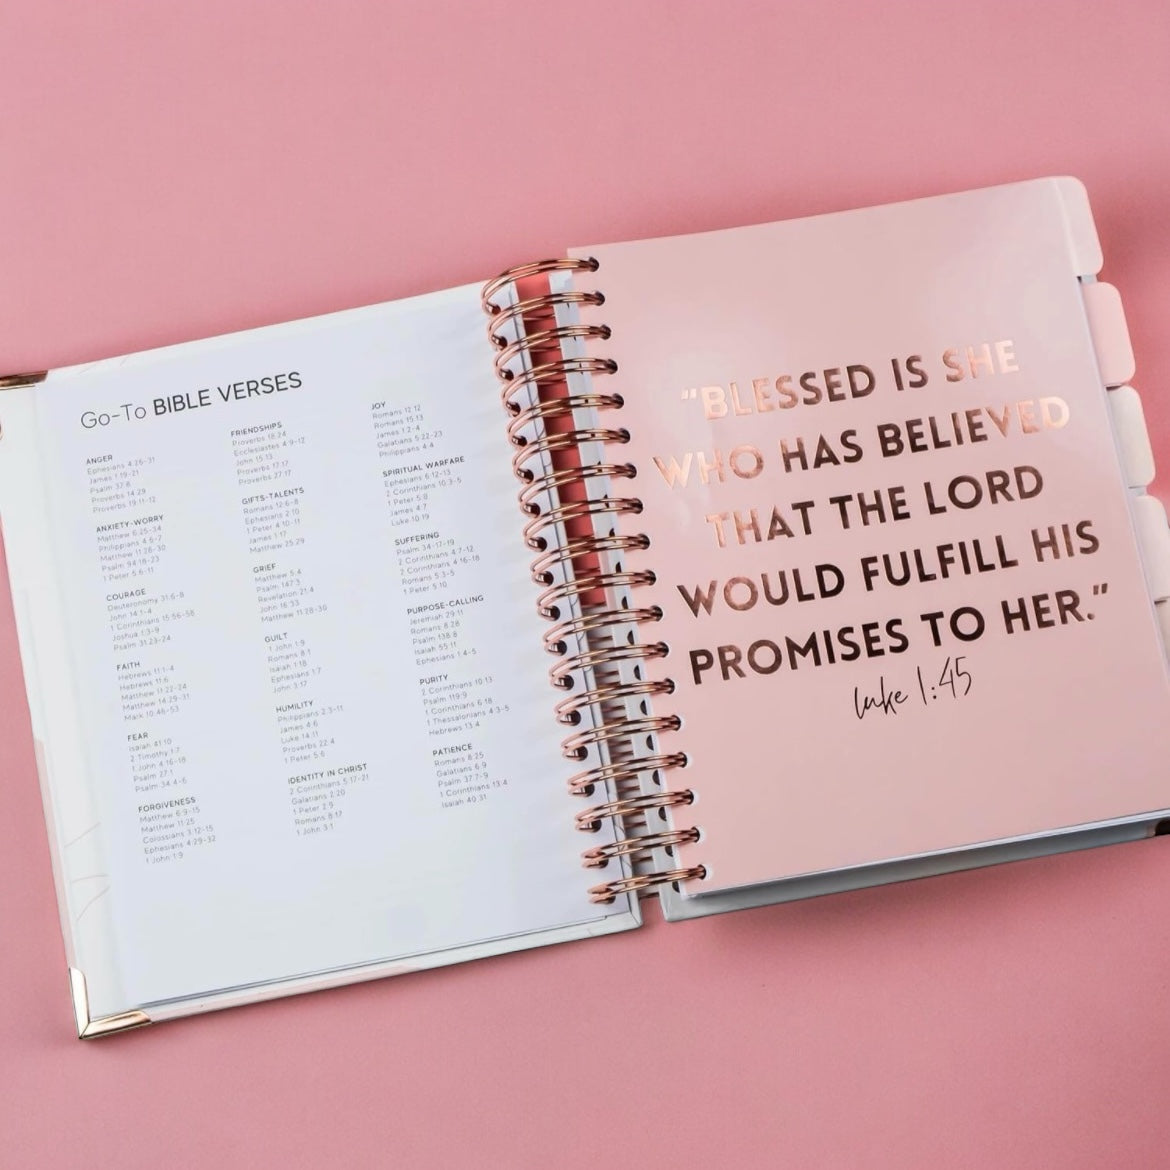 Go-To BIBLE VERSES
ANGER
Ephesians 4:26-31
James 1:19-21
Psalm 37:8
Proverbs 14:29
Proverbs 19:11-12
ANXIETY-WORRY
Matthew 6:25-34
Philippians 4:6-7
Matthew 11:28-30
Psalm 94:18-23
1 Peter 5:6-11
COURAGE
Deuteronomy 31:6-8
John 14:1-4
1 Corinthians 15:56-58
Joshua 1:3-9
Psalm 31:23-24
FAITH
Hebrews 11:1-4
Hebrews 11:6
Matthew 11:22-24
Matthew 14:29-31
Mark 10:46-53
FEAR
Isaiah 41:10
2 Timothy 1:7
1 John 4:16-18
Psalm 27:1
Psalm 34:4-5
FORGIVENESS
Matthew 6:9-15
Matthew 11:25
Colossians 3:12-15
Ephesians 4:29-32
1 John 1:9
FRIENDSHIPS
Proverbs 18:24
Ecclesiastes 4:9-12
John 15:13
Proverbs 17:17
Proverbs 27:17
GIFTS-TALENTS
Romans 12:6-8
Ephesians 2:10
1 Peter 4:10-11
James 1:17
Matthew 25:29
GRIEF
Matthew 5:4
Psalm 147:3
Revelation 21:4
John 16:33
Matthew 11:28-30
GUILT
1 John 1:9
Romans 8:1
Isaiah 1:18
Ephesians 1:7
John 3:17
HUMILITY
Philippians 2:3-11
James 4:6
Luke 14:11
Proverbs 22:4
1 Peter 5:6
IDENTITY IN CHRIST
2 Corinthians 5:17-21
Galatians 2:20
1 Peter 2:9
Romans 8:17
1 John 3:1
JOY
Romans 12:12
Romans 15:13
James 1:2-4
Galatians 5:22-23
Philippians 4:4
SPIRITUAL WARFARE
Ephesians 6:12-13
2 Corinthians 10:3-5
1 Peter 5:8
James 4:7
Luke 10:19
SUFFERING
Psalm 34:17-19
2 Corinthians 4:7-12
2 Corinthians 4:16-18
Romans 5:3-5
1 Peter 5:10
PURPOSE-CALLING
Jeremiah 29:11
Romans 8:28
Psalm 138:8
Isaiah 55:11
Ephesians 1:4-5
PURITY
2 Corinthians 10:13
Psalm 119:9
1 Corinthians 6:18
1 Thessalonians 4:3-5
Hebrews 13:4
PATIENCE
Romans 8:25
Galatians 6:9
Psalm 37:7-9
1 Corinthians 13:4
Isaiah 40:31
"BLESSED IS SHE
WHO HAS BELIEVED
THAT THE LORD
WOULD FULFILL HIS
PROMISES TO HER."
Luke 1:45